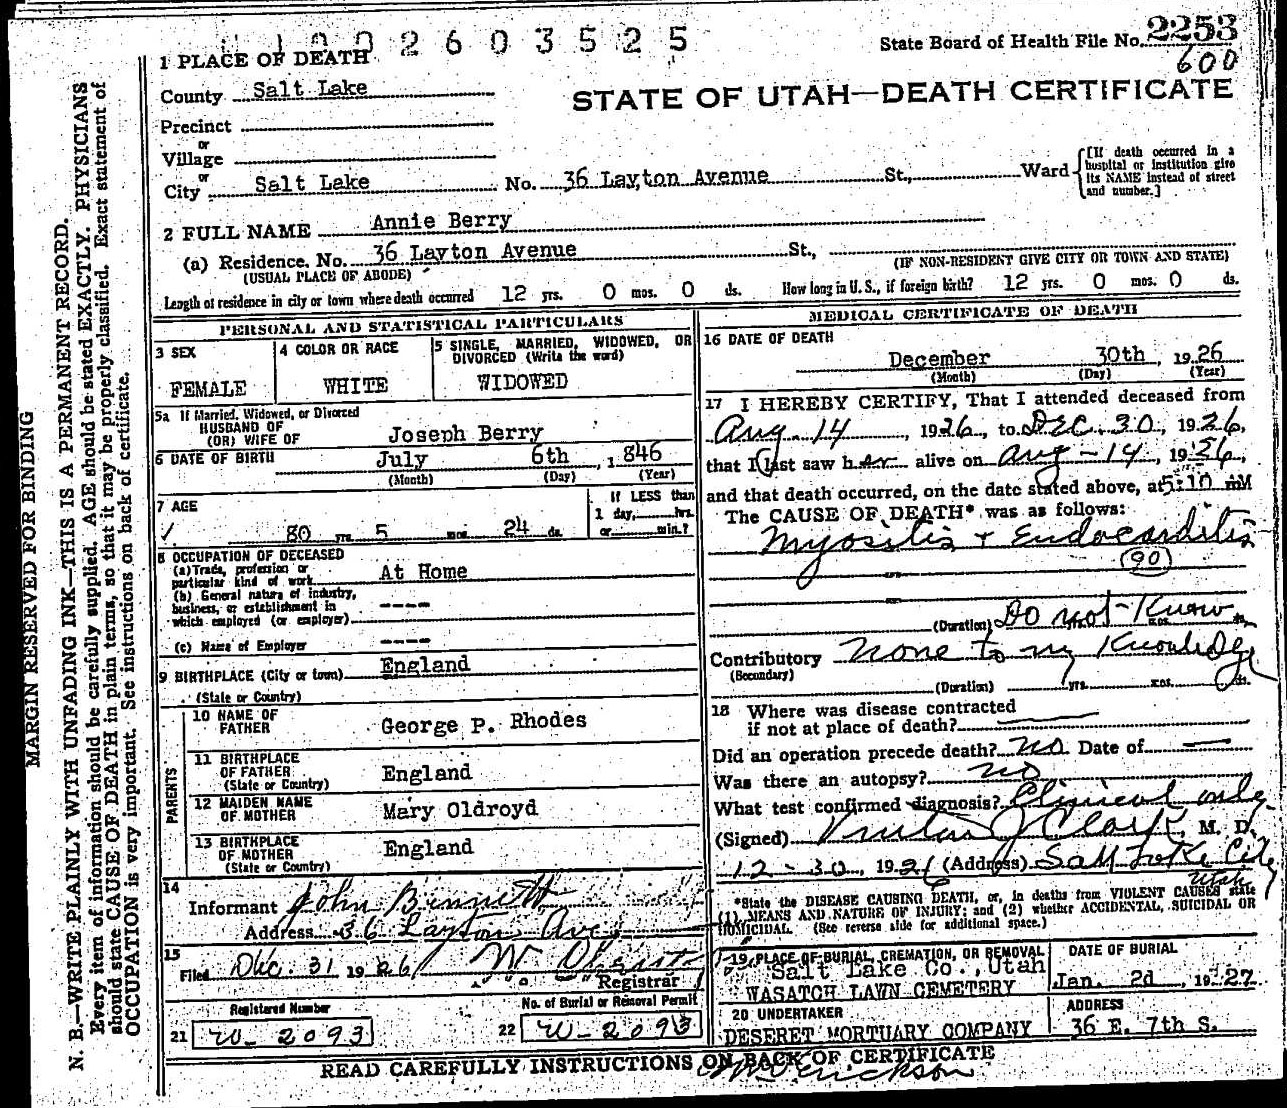 1002603525
State Board of Health File No. 2253
600
1 PLACE OF DEATH
County Salt Lake
STATE OF UTAH—DEATH CERTIFICATE
Precinct
or
Village
or
City Salt Lake No. 36 Layton Avenue St., Ward
[If death occurred in a hospital or institution give its NAME instead of street and number.]
2 FULL NAME Annie Berry
(a) Residence. No. 36 Layton Avenue St.,
(USUAL PLACE OF ABODE) (IF NON-RESIDENT GIVE CITY OR TOWN AND STATE)
Length of residence in city or town where death occurred 12 yrs. 0 mos. 0 ds. How long in U. S., if foreign birth? 12 yrs. 0 mos. 0 ds.
PERSONAL AND STATISTICAL PARTICULARS
3 SEX
FEMALE
4 COLOR OR RACE
WHITE
5 SINGLE, MARRIED, WIDOWED, OR
DIVORCED (Write the word)
WIDOWED
5a If Married, Widowed, or Divorced
HUSBAND OF
(OR) WIFE OF Joseph Berry
6 DATE OF BIRTH July 6th, 1846
(Month) (Day) (Year)
7 AGE
80 yrs. 5 mos. 24 ds.
If LESS than
1 day, hrs.
or min.?
8 OCCUPATION OF DECEASED
(a) Trade, profession or
particular kind of work At Home
(b) General nature of industry,
business, or establishment in
which employed (or employer) ----
(c) Name of Employer ----
9 BIRTHPLACE (City or town) England
(State or Country)
PARENTS
10 NAME OF
FATHER George P. Rhodes
11 BIRTHPLACE
OF FATHER England
(State or Country)
12 MAIDEN NAME
OF MOTHER Mary Oldroyd
13 BIRTHPLACE
OF MOTHER England
(State or Country)
14
Informant John Bennett
Address 36 Layton Ave
15
Filed Dec. 31 1926
Registrar
Registered Number
21 W-2093
No. of Burial or Removal Permit
22 W-2093
MEDICAL CERTIFICATE OF DEATH
16 DATE OF DEATH
December 30th, 1926
(Month) (Day) (Year)
17 I HEREBY CERTIFY, That I attended deceased from
Aug. 14, 1926, to Dec. 30, 1926,
that I last saw her alive on Aug-14, 1926,
and that death occurred, on the date stated above, at 5:10 M
The CAUSE OF DEATH* was as follows:
Myositis + Endocarditis
(90)
(Duration) Do not Know
Contributory None to my Knowledge
(Secondary)
(Duration) yrs. mos. ds.
18 Where was disease contracted
if not at place of death?
Did an operation precede death? no Date of —
Was there an autopsy? no
What test confirmed diagnosis? Clinical only
(Signed) J Clark, M. D.
12-30, 1926 (Address) Salt Lake City
Utah
*State the DISEASE CAUSING DEATH, or, in deaths from VIOLENT CAUSES state
(1) MEANS AND NATURE OF INJURY; and (2) whether ACCIDENTAL, SUICIDAL OR
HOMICIDAL. (See reverse side for additional space.)
19 PLACE OF BURIAL, CREMATION, OR REMOVAL
Salt Lake Co., Utah
WASATCH LAWN CEMETERY
DATE OF BURIAL
Jan. 2d, 1927
20 UNDERTAKER
DESERET MORTUARY COMPANY
ADDRESS
36 E. 7th S.
READ CAREFULLY INSTRUCTIONS ON BACK OF CERTIFICATE
Erickson
MARGIN RESERVED FOR BINDING
N. B.—WRITE PLAINLY WITH UNFADING INK—THIS IS A PERMANENT RECORD.
Every item of information should be carefully supplied. AGE should be stated EXACTLY. PHYSICIANS
should state CAUSE OF DEATH in plain terms, so that it may be properly classified. Exact statement of
OCCUPATION is very important. See instructions on back of certificate.